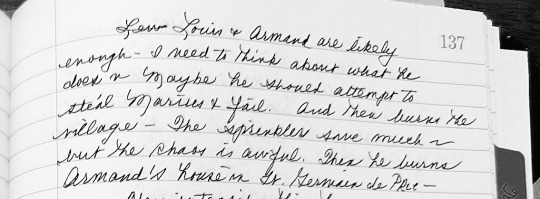 137
Louis & Armand are likely
enough - I need to think about what he
does ~ Maybe he should attempt to
steal Marius & fail. And then burns the
village - The sprinklers save much ~
but the chaos is awful. Then he burns
Armand's house in St. Germain de Pre -